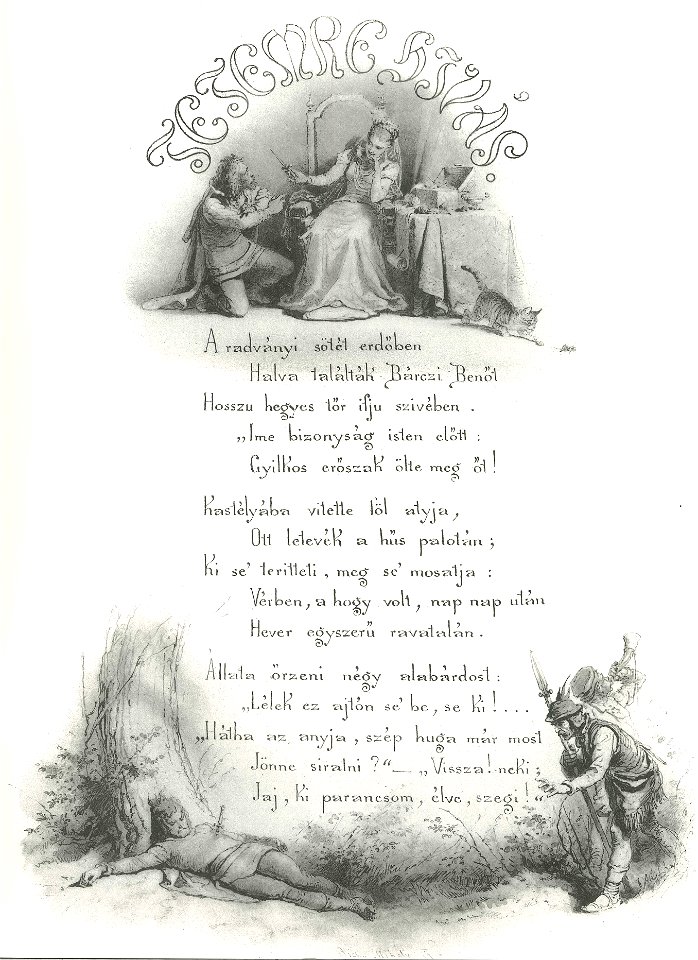 TETEMRE HÍVÁS.
A radványi sötét erdőben
Halva találták Bárczi Benőt
Hosszu hegyes tőr ifju szivében.
„Ime bizonyság isten előtt:
Gyilkos erőszak ölte meg őt!
Kastélyába vitette föl atyja,
Ott letevék a hűs palotán;
Ki se' teritteti, meg se' mosatja:
Vérben, a hogy volt, nap nap után
Hever egyszerű ravatalán.
Állata őrzeni négy alabárdost:
„Lélek ez ajtón se' be, se ki!...
„Hátha az anyja, szép huga már most
Jönne siratni?" — „Vissza! neki;
Jaj, ki parancsom, élve, szegi!"